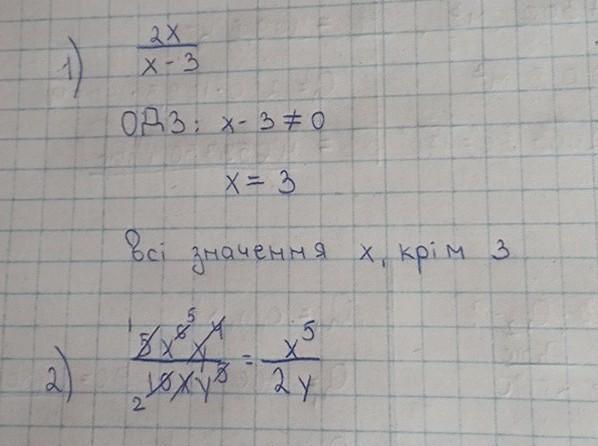 1) 2x / x - 3
ОДЗ: x - 3 ≠ 0
x = 3
Всі значення x, крім 3
2) 5x⁶ 5 / 10xy = x⁵ / 2y